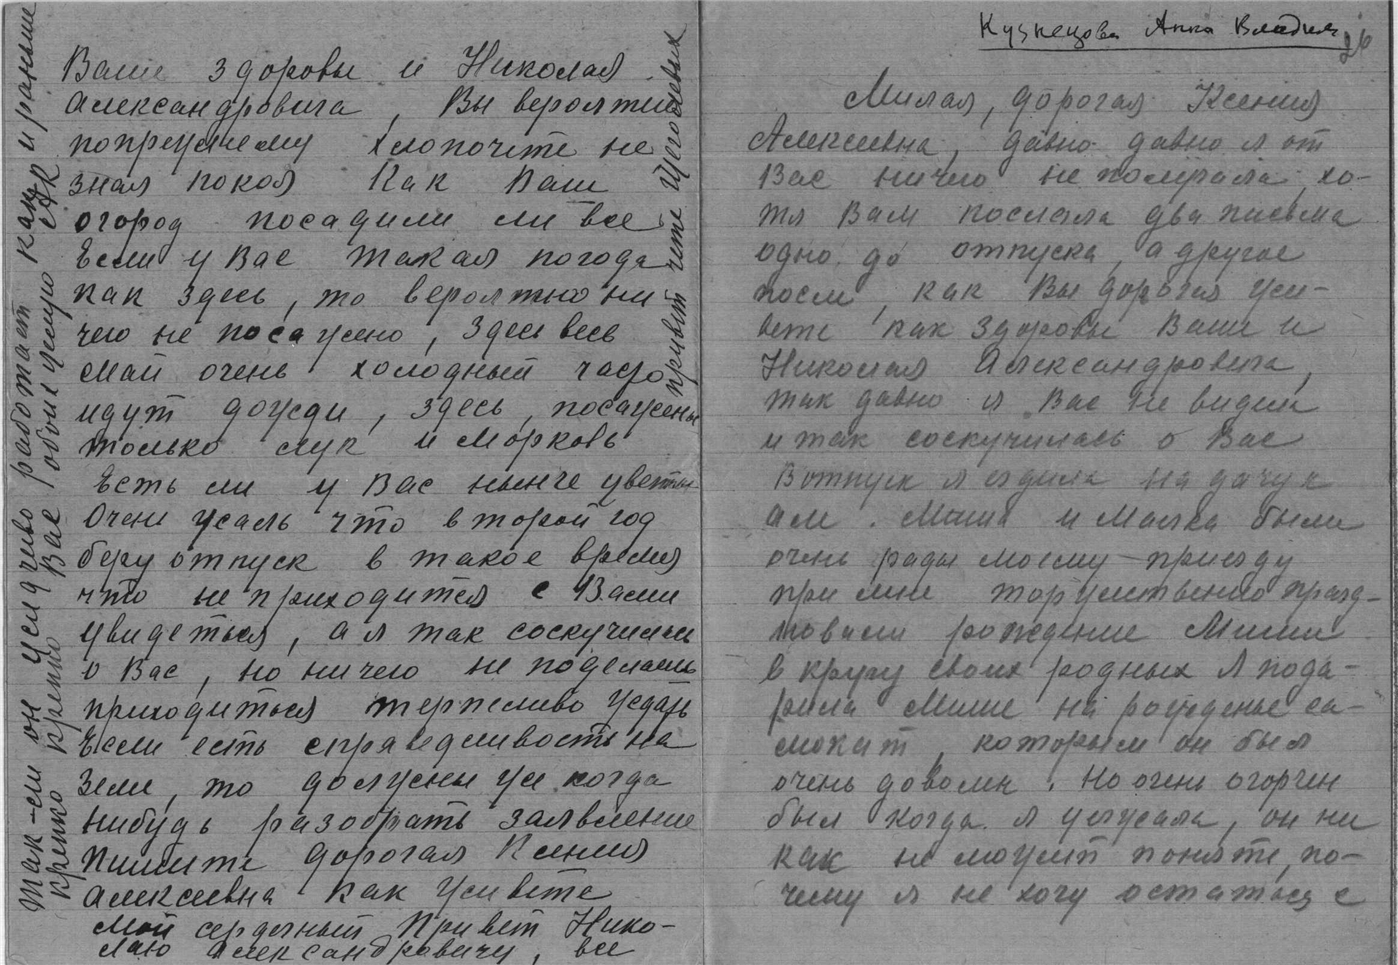 Кузнецова Анна Владим
26
Милая, дорогая Ксения
Алексеевна, давно давно я от
Вас ничего не получала, хо-
тя Вам послала два письма
одно до отпуска, а другое
после, как Вы дорогая жи-
вете как здоровье Ваше и
Николая Александровича,
так давно я Вас не видела
и так соскучилась о Вас
В отпуск я ездила на дачу к
Миша и Малка были
очень рады моему приезду
при мне торжественно празд-
новали рождение Миши
в кругу своих родных я пода-
рила Мише на рожденье са-
мокат, которым он был
очень доволен. Но очень огорчен
был когда я уезжала, он ни
как не может понять, по-
чему я не хочу остаться с
Ваше здоровье и Николая
Александровича, Вы вероятно
попрежнему хлопочете не
зная покоя Как Ваш
огород посадили ли все
Если у Вас такая погода
как здесь, то вероятно ни
чего не посажено, здесь весь
май очень холодный часто
идут дожди, здесь, посажены
только лук и морковь
Есть ли у Вас нынче цветы
Очень жаль что второй год
беру отпуск в такое время
что не приходится с Вами
увидеться, а я так соскучилась
о Вас, но ничего не поделаешь
приходиться терпеливо ждать
Если есть справедливость на
земле, то должны же когда
нибудь разобрать заявление
Пишите дорогая Ксения
Алексеевна как живете
Мой сердечный Привет Нико-
лаю Александровичу, все
так-ли он усидчиво работает как и раньше
Крепко крепко Вас обоих целую АК
привет чете Щеголевых